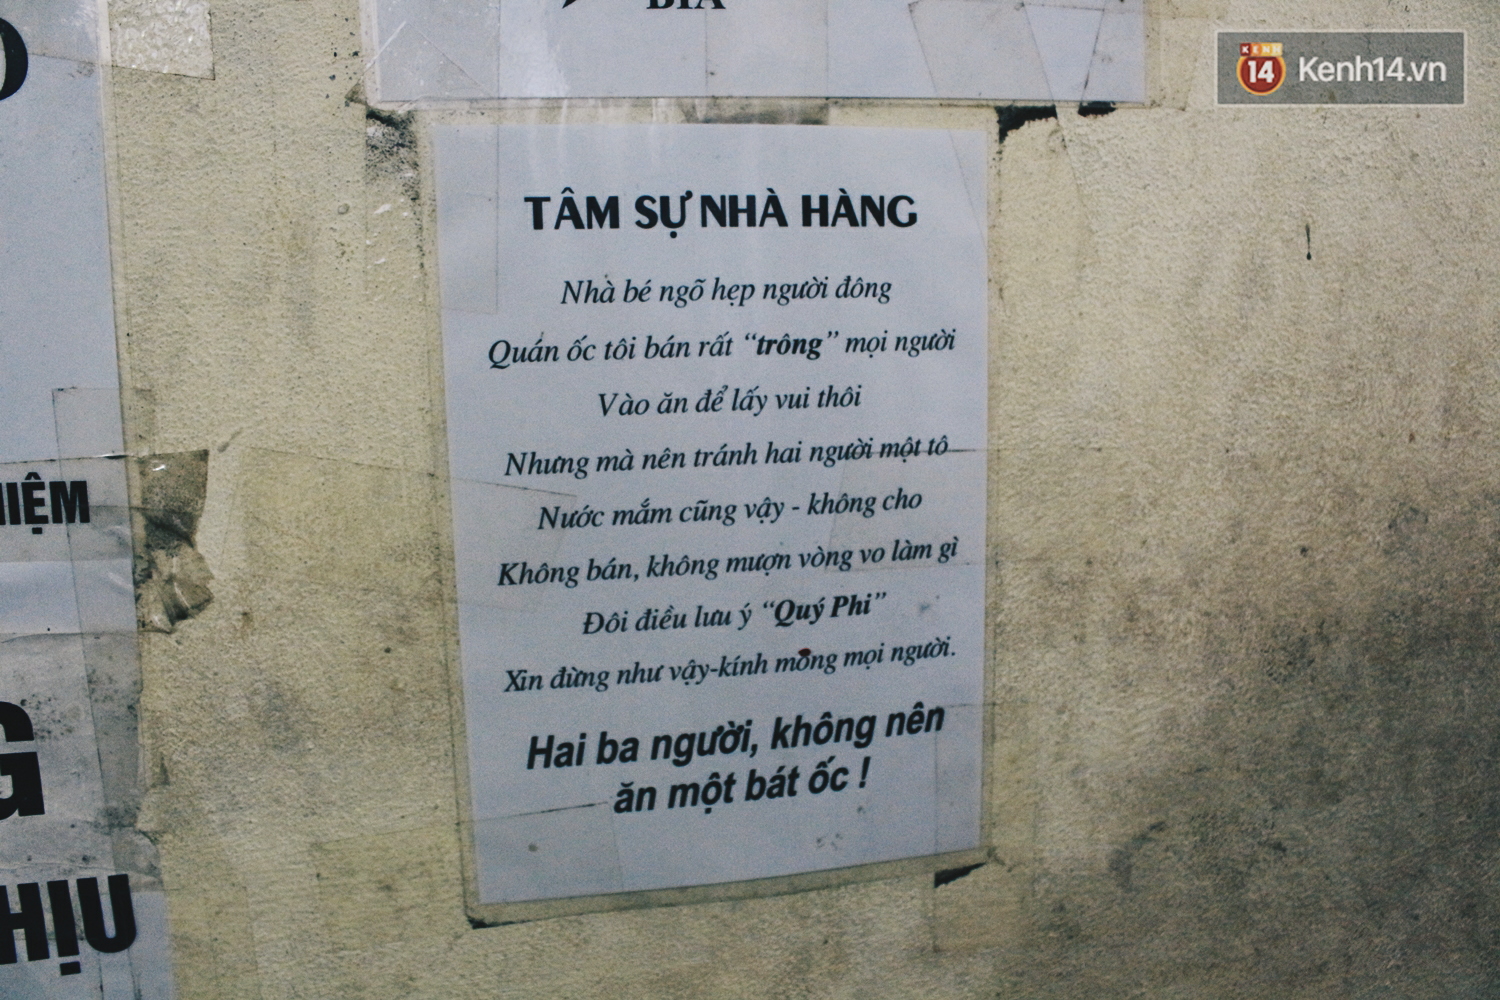 BIA
KENH
14
Kenh14.vn
TÂM SỰ NHÀ HÀNG
Nhà bé ngõ hẹp người đông
Quán ốc tôi bán rất “trông” mọi người
Vào ăn để lấy vui thôi
Nhưng mà nên tránh hai người một tô
Nước mắm cũng vậy - không cho
Không bán, không mượn vòng vo làm gì
Đôi điều lưu ý “Quý Phi”
Xin đừng như vậy-kính mông mọi người.
Hai ba người, không nên
ăn một bát ốc !